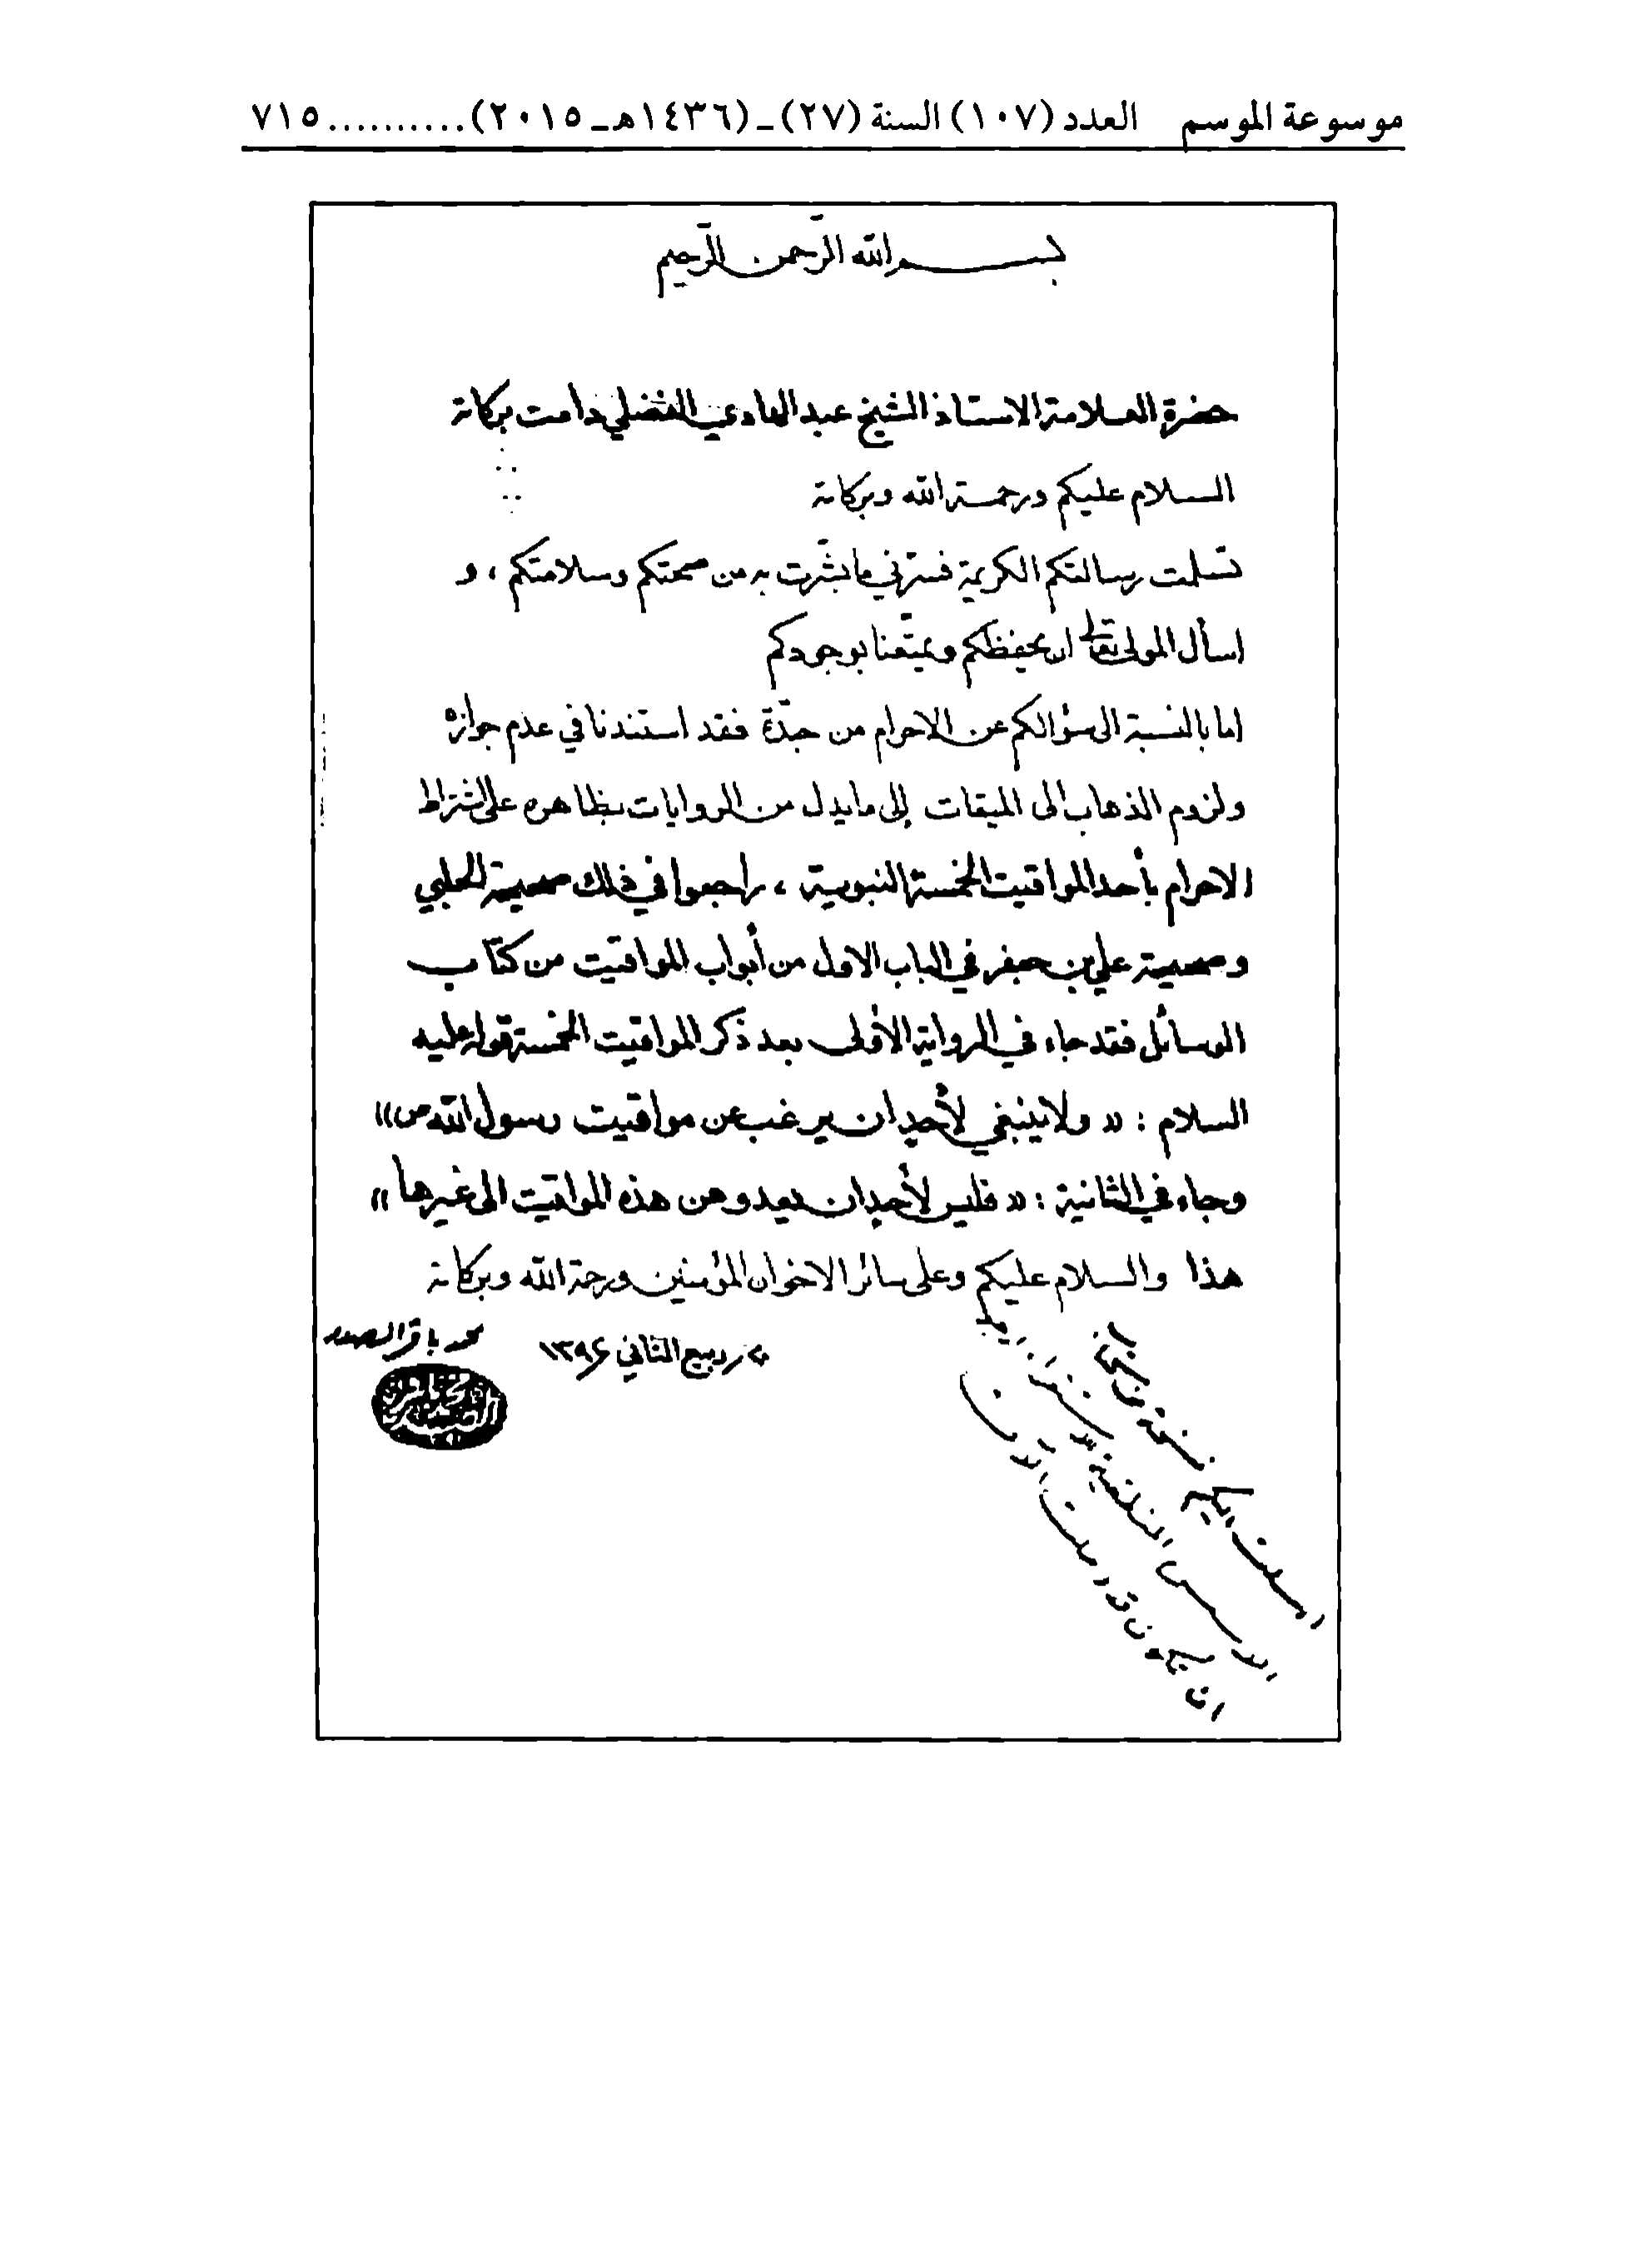 موسوعة الموسم العدد (١٠٧) السنة (٢٧) ـ (١٤٣٦هـ ـ ٢٠١٥) .......... ٧١٥
بسم الله الرّحمن الرّحيم
حضرة العلامة الاستاذ الشيخ عبد الهادي الفضلي دامت بركاته
السلام عليكم ورحمة الله وبركاته
تسلمت رسالتكم الكريمة فسرّني ما بشّرت به من صحتكم وسلامتكم ، و
اسأل المولى تعالى ان يحفظكم ويمتّعنا بوجودكم
اما بالنسبة الى سؤالكم عن الاحرام من جدّة فقد استندنا في عدم جوازه
ولزوم الذهاب الى الميقات إلى ما يدل من الروايات بظاهره على اشتراط
الاحرام بأحد المواقيت الخمسة النبوية ، راجعوا في ذلك صحيحة الحلبي
وصحيحة علي بن جعفر في الباب الاول من أبواب المواقيت من كتاب
الوسائل فقد جاء في الرواية الأولى بعد ذكر المواقيت الخمسة قوله عليه
السلام : « ولا ينبغي لأحد ان يرغب عن مواقيت رسول الله ص »
وجاء في الثانية : « فليس لأحد ان يعدو من هذه المواقيت الى غيرها »
هذا والسلام عليكم وعلى سائر الاخوان المؤمنين ورحمة الله وبركاته
ربيع الثاني ١٣٩٦
محمد باقر الصدر
ارسلت اليكم نسخة من كتاب
الاسس المنطقية للاستقراء
ان تكون قد وصلت